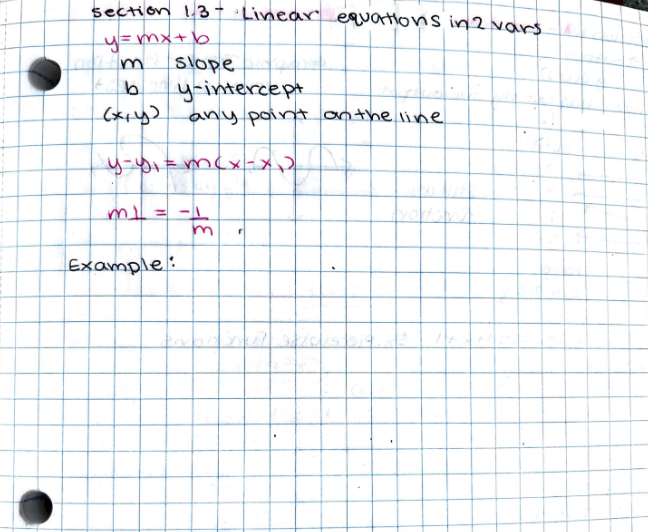 section 1.3 - Linear equations in 2 vars
y=mx+b
m slope
b y-intercept
(x,y) any point on the line
y-y₁=m(x-x₁)
m⊥ = -1/m
Example: